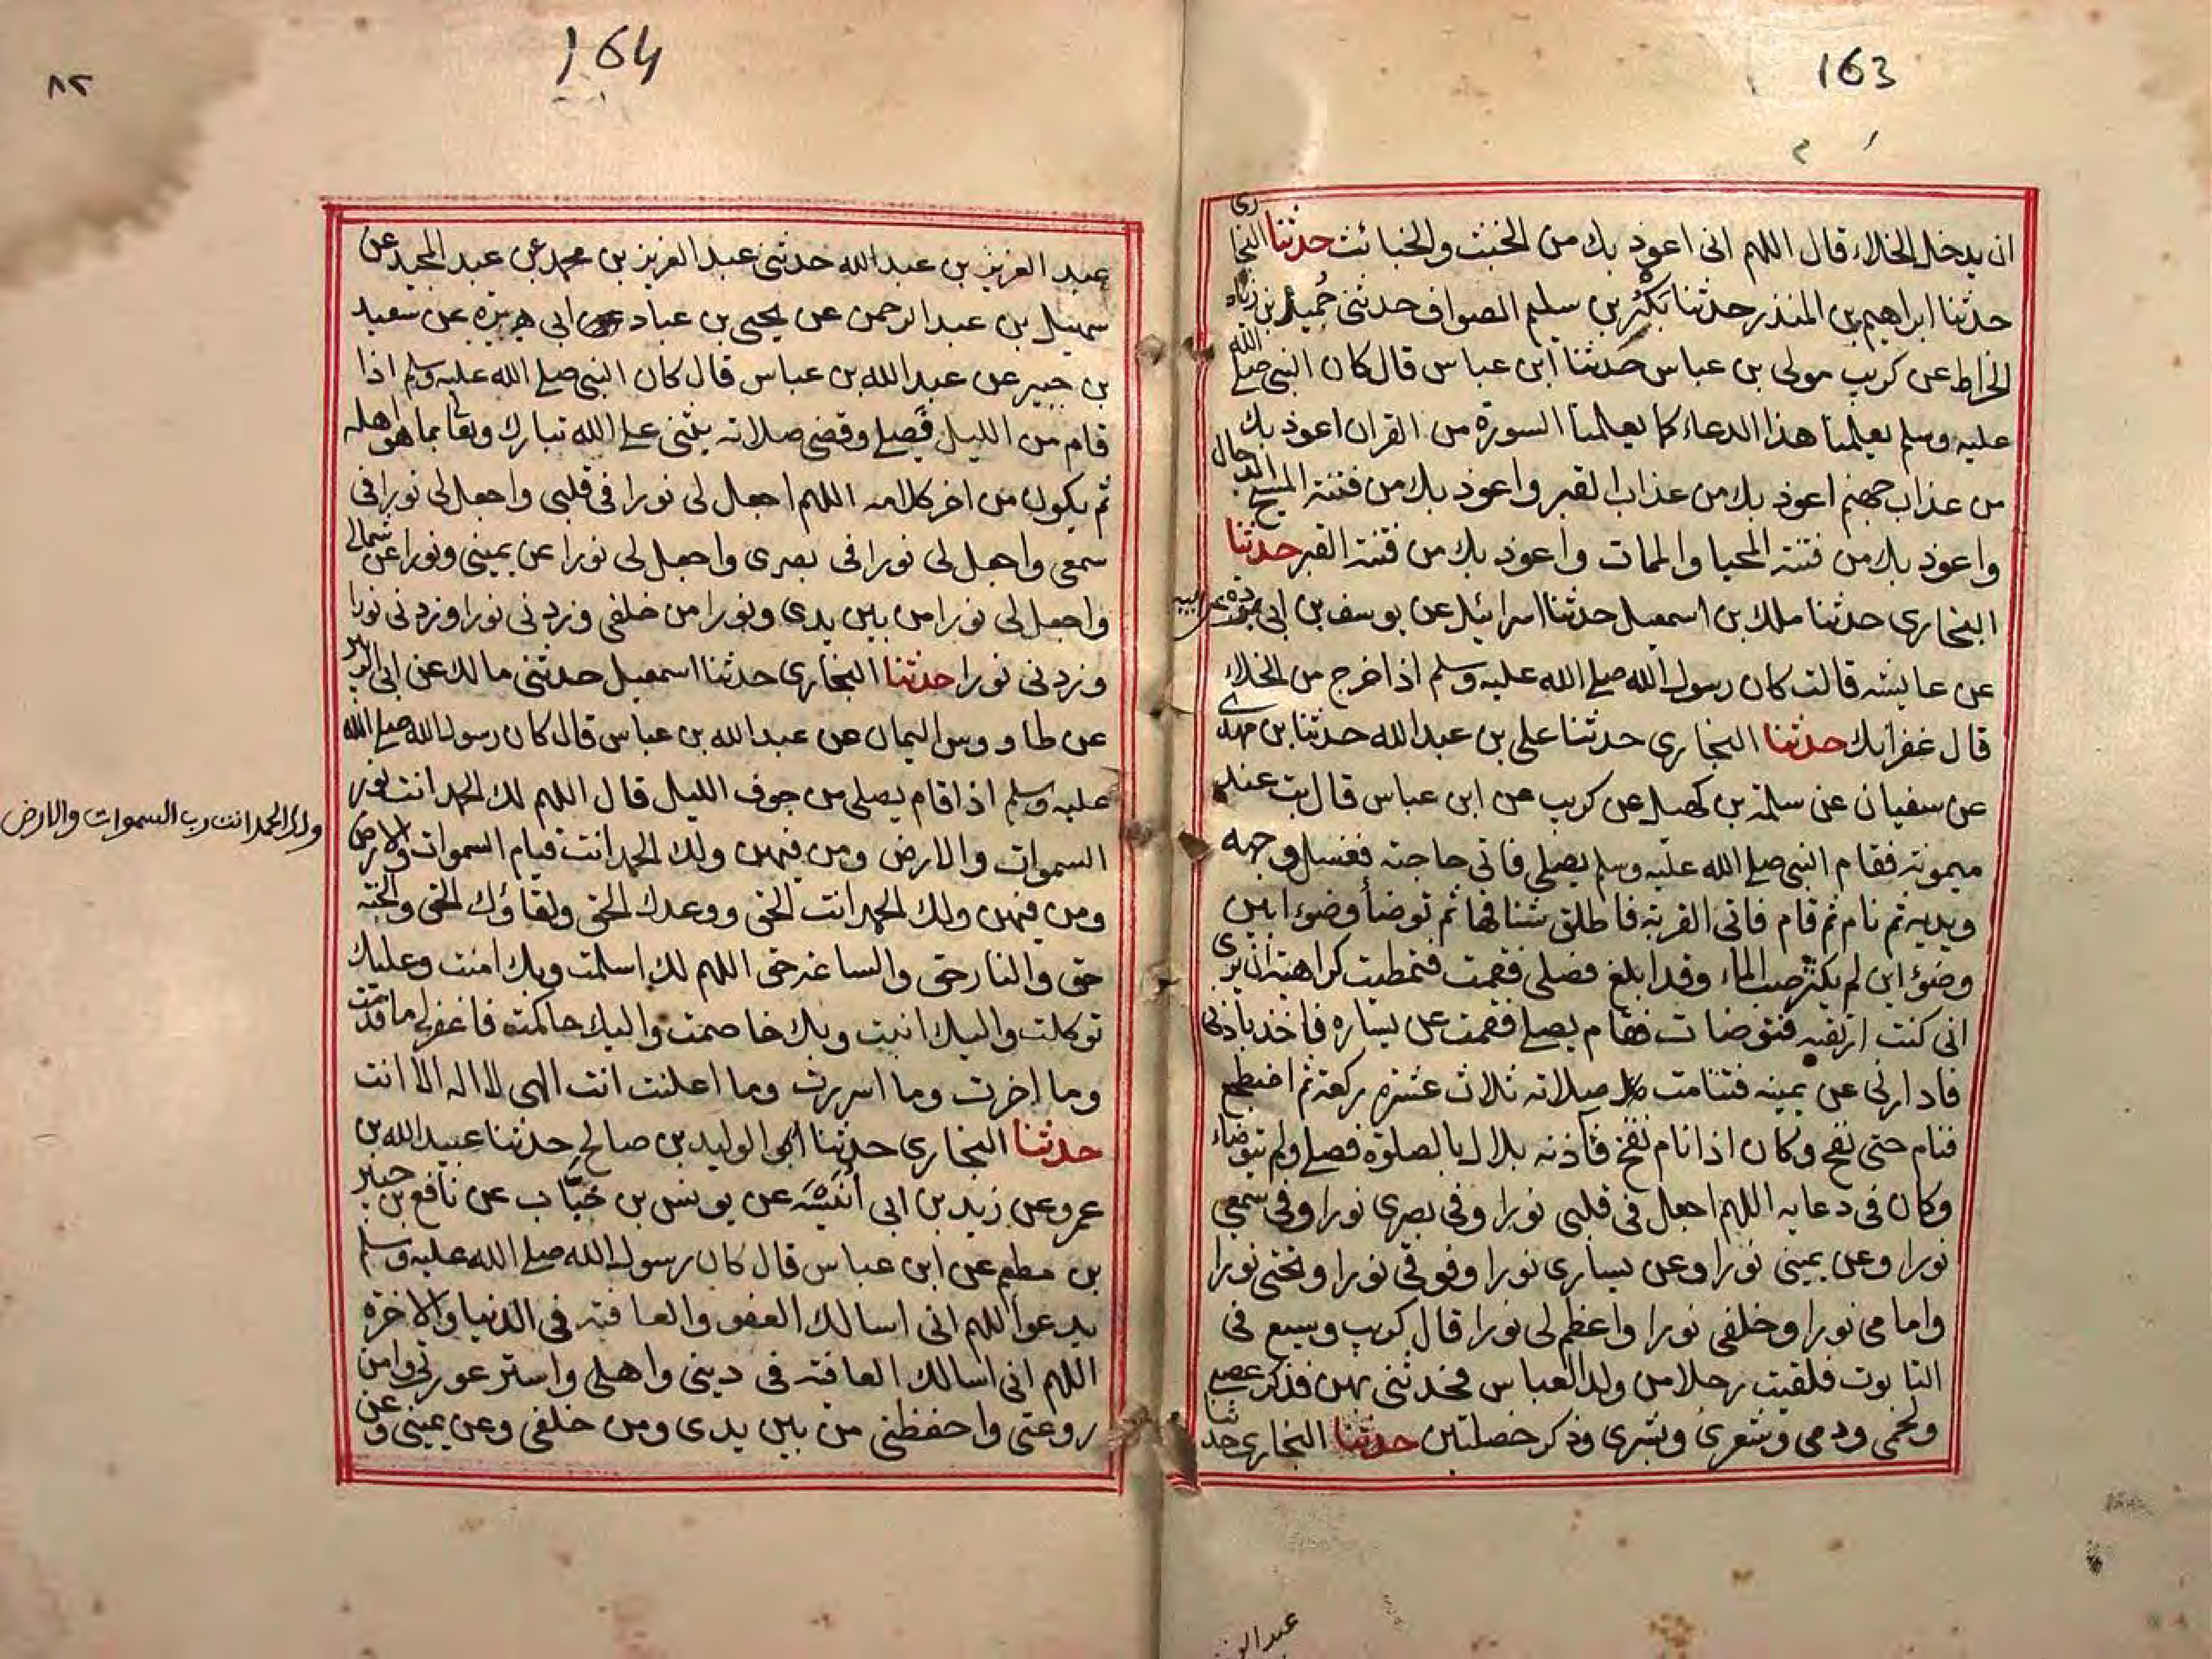 163
ان يدخل الخلاء قال اللهم انى اعوذ بك من الخبث والخبائث حدثنا البخارى
حدثنا ابراهيم بن المنذر حدثنا بكر بن سليم الصواف حدثنى حميد بن زياد
الخراط عن كريب مولى بن عباس حدثنا ابن عباس قال كان النبى صلى الله
عليه وسلم يعلمنا هذا الدعاء كما يعلمنا السورة من القران اعوذ بك
من عذاب جهنم اعوذ بك من عذاب القبر واعوذ بك من فتنة المسيح الدجال
واعوذ بك من فتنة المحيا والممات واعوذ بك من فتنة القبر حدثنا
البخارى حدثنا ملك بن اسمعيل حدثنا اسرائيل عن يوسف بن ابى بردة عن ابيه
عن عايشه قالت كان رسول الله صلى الله عليه وسلم اذا خرج من الخلاء
قال غفرانك حدثنا البخارى حدثنا على بن عبد الله حدثنا بن مهدى
عن سفيان عن سلمة بن كهيل عن كريب عن ابن عباس قال بت عند
ميمونة فقام النبى صلى الله عليه وسلم يصلى فاتى حاجته فغسل وجهه
ويديه ثم نام ثم قام فاتى القربة فاطلق شناقها ثم توضأ وضوءا بين
وضوء ابن لم يكثر صب الماء وقد ابلغ فصلى فقمت فتمطيت كراهية ان يرى
انى كنت ارتقبه فتوضات فقام يصلى فقمت عن يساره فاخذ باذنى
فادارنى عن يمينه فتتامت صلاته ثلاث عشرة ركعة ثم اضطجع
فنام حتى نفخ وكان اذا نام نفخ فآذنه بلال بالصلوة فصلى ولم يتوضاء
وكان فى دعايه اللهم اجعل فى قلبى نورا وفى بصرى نورا وفى سمعى
نورا وعن يمينى نورا وعن يسارى نورا وفوقى نورا وتحتى نورا
وامامى نورا وخلفى نورا واعظم لى نورا قال كريب وسبع فى
التابوت فلقيت رجلا من ولد العباس فحدثنى بهن فذكر عصبى
ولحمى ودمى وشعرى وبشرى وذكر خصلتين حدثنا البخارى حدثنا
164
٨٢
عبد العزيز بن عبد الله حدثنى عبد العزيز بن محمد عن عبد المجيد عن
سهيل بن عبد الرحمن عن يحيى بن عباد ابى هريرة عن سعيد
بن جبير عن عبد الله بن عباس قال كان النبى صلى الله عليه وسلم اذا
قام من الليل فصلى وقضى صلاته يثنى على الله تبارك وتعالى بما هو اهله
ثم يكون من اخر كلامه اللهم اجعل لى نورا فى قلبى واجعل لى نورا فى
سمعى واجعل لى نورا فى بصرى واجعل لى نورا عن يمينى ونورا عن شمالى
واجعل لى نورا من بين يدى ونورا من خلفى وزدنى نورا وزدنى نورا
وزدنى نورا حدثنا البخارى حدثنا اسمعيل حدثنى مالك عن ابى الزبير
عن طاووس اليمان عن عبد الله بن عباس قال كان رسول الله صلى الله
عليه وسلم اذا قام يصلى من جوف الليل قال اللهم لك الحمد انت نور
السموات والارض ومن فيهن ولك الحمد انت قيام السموات والارض
ولك الحمد انت رب السموات والارض
ومن فيهن ولك الحمد انت الحق ووعدك الحق ولقاؤك الحق والجنة
حق والنار حق والساعة حق اللهم لك اسلمت وبك امنت وعليك
توكلت واليك انبت وبك خاصمت واليك حاكمته فاغفر لى ما قدمت
وما اخرت وما اسررت وما اعلنت انت الهى لا اله الا انت
حدثنا البخارى حدثنا ابو الوليد بن صالح حدثنا عبيد الله بن
عمرو عن زيد بن ابى انيسة عن يونس بن خباب عن نافع بن جبير
بن مطعم عن ابن عباس قال كان رسول الله صلى الله عليه وسلم
يدعوا اللهم انى اسالك العفو والعافية فى الدنيا والاخرة
اللهم انى اسالك العافته فى دينى واهلى واستر عورتى وامن
روعتى واحفظنى من بين يدى ومن خلفى وعن يمينى وعن